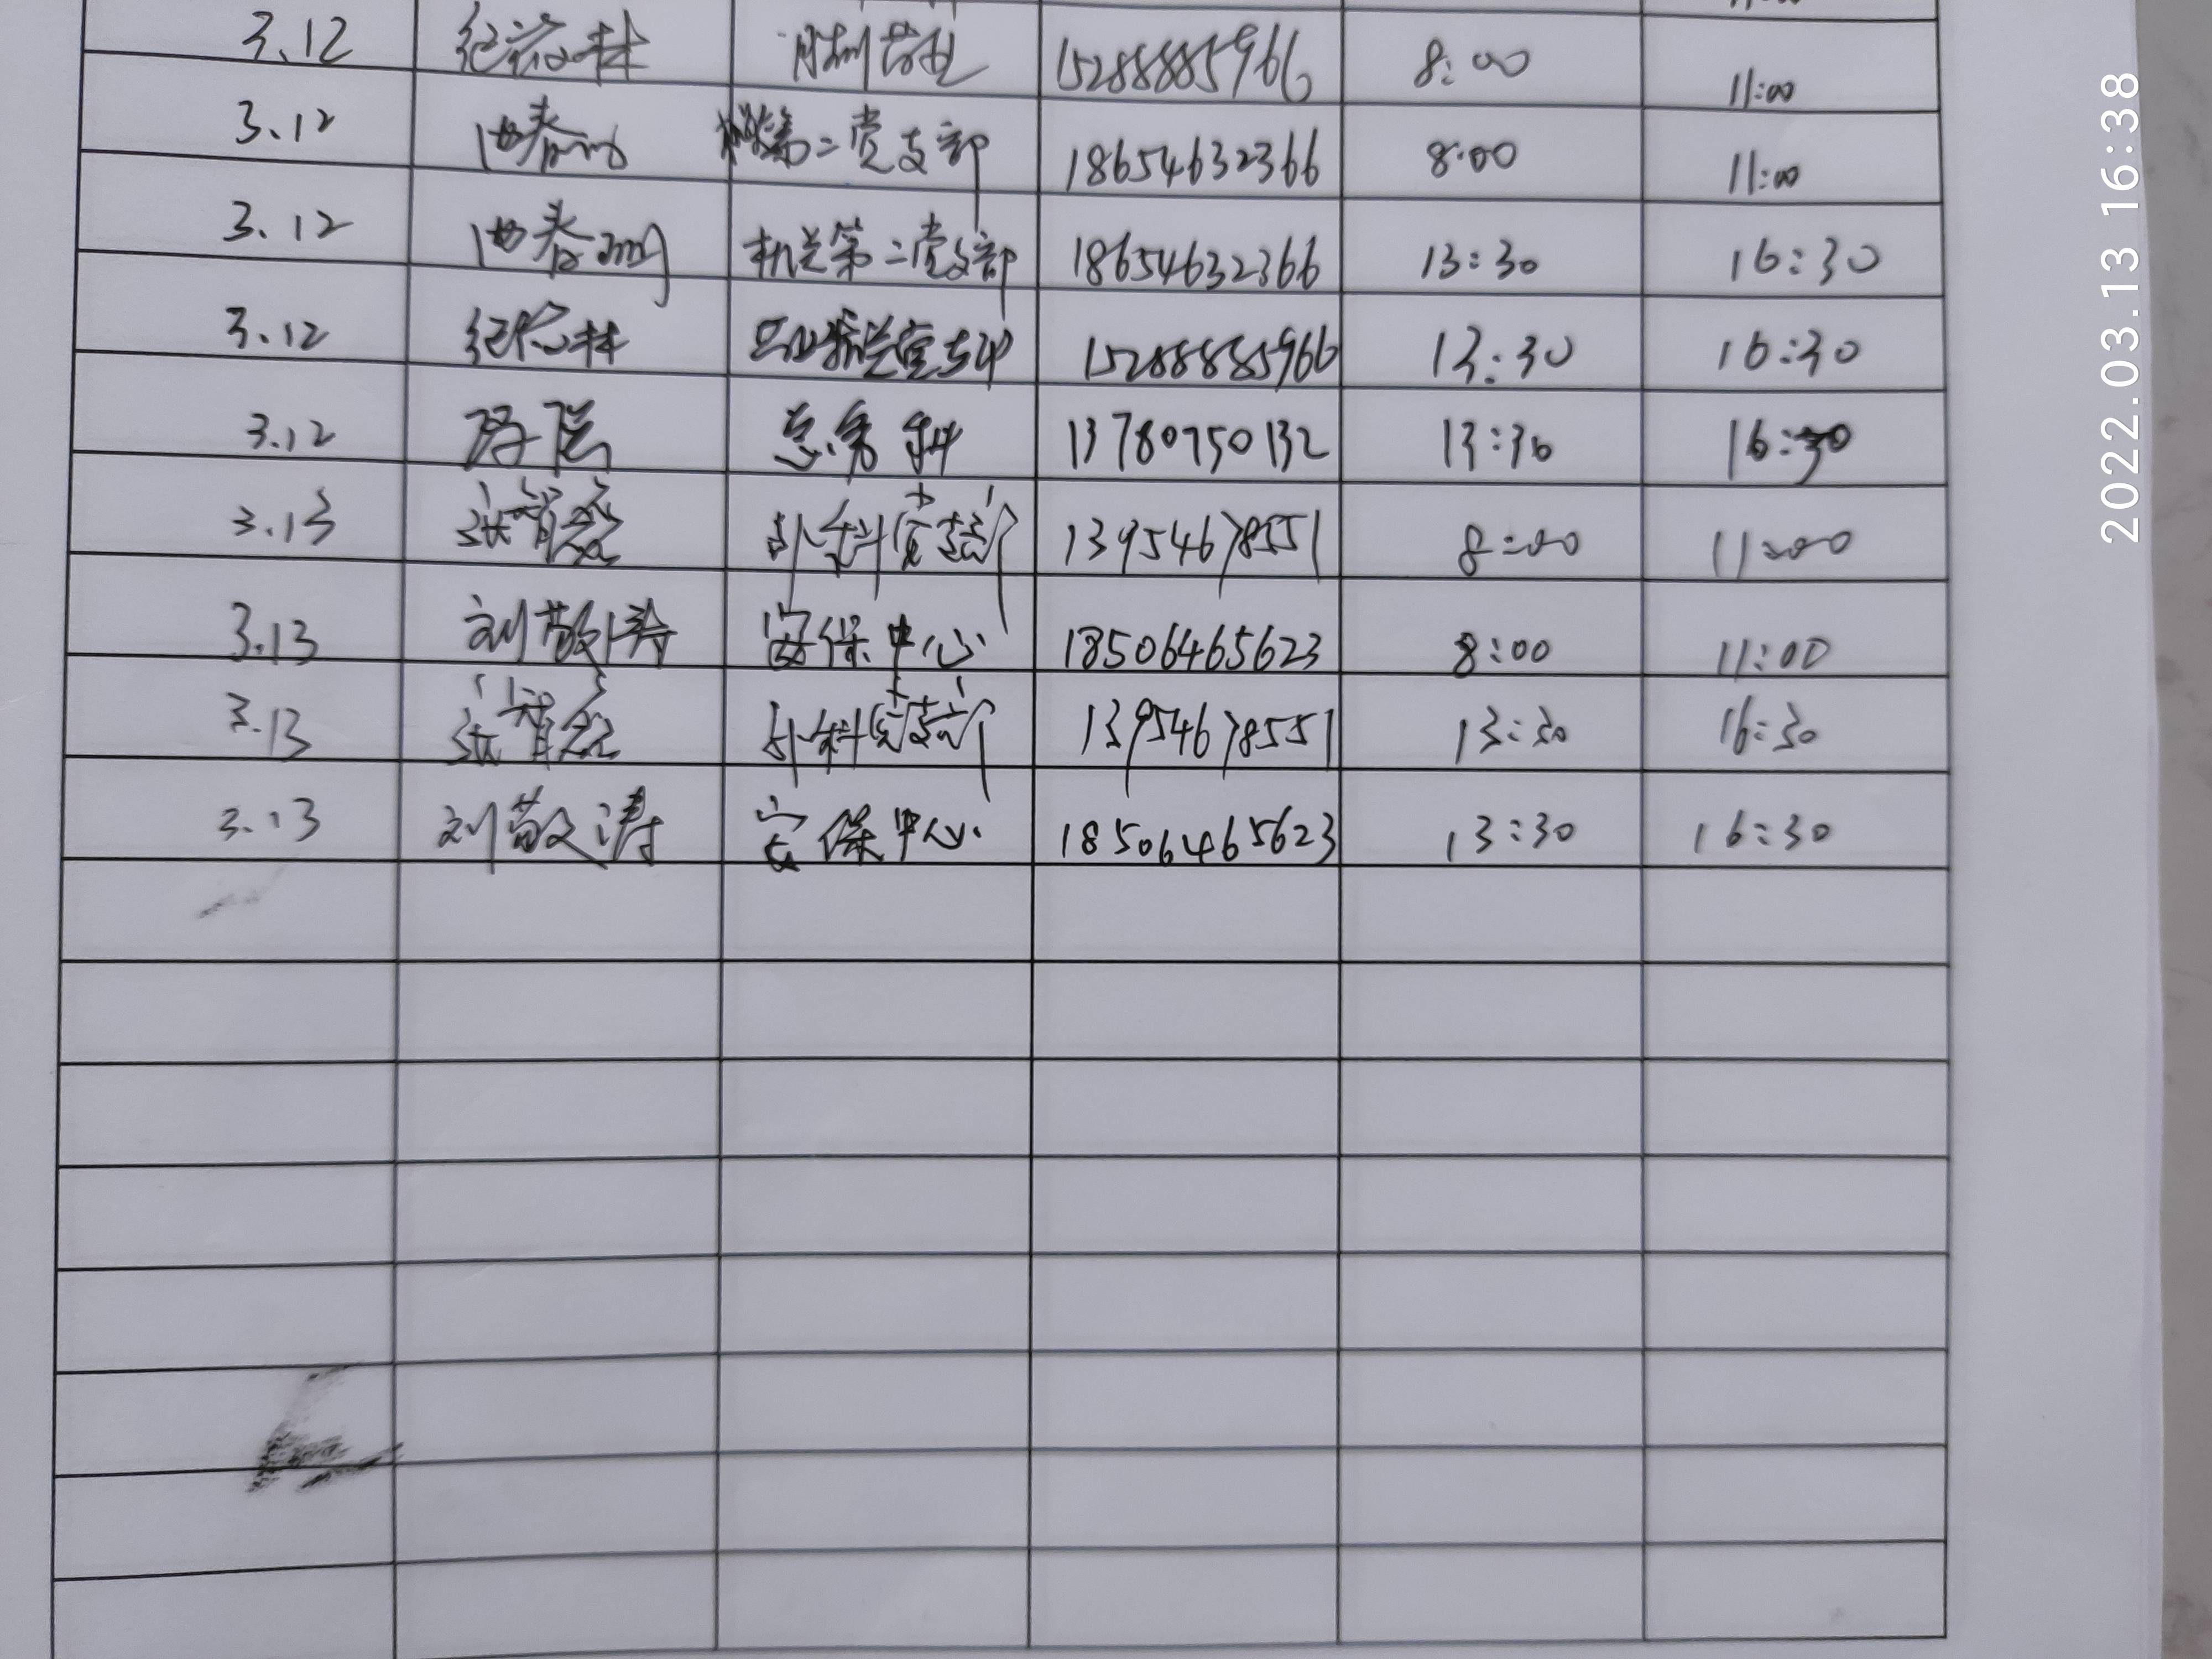 11:00
3.12 纪 林 15288885966 8:00 11:00
3.12 春 第二党支部 18654632366 8:00 11:00
3.12 春 机关第二党支部 18654632366 13:30 16:30
3.12 纪 林 党支部 15288885966 13:30 16:30
3.12 总务科 13780750132 13:30 16:30
3.13 外科党支部 13954678551 8:00 11:00
3.13 刘敬涛 安保中心 18506465623 8:00 11:00
3.13 外科党支部 13954678551 13:30 16:30
3.13 刘敬涛 安保中心 18506465623 13:30 16:30
2022.03.13 16:38